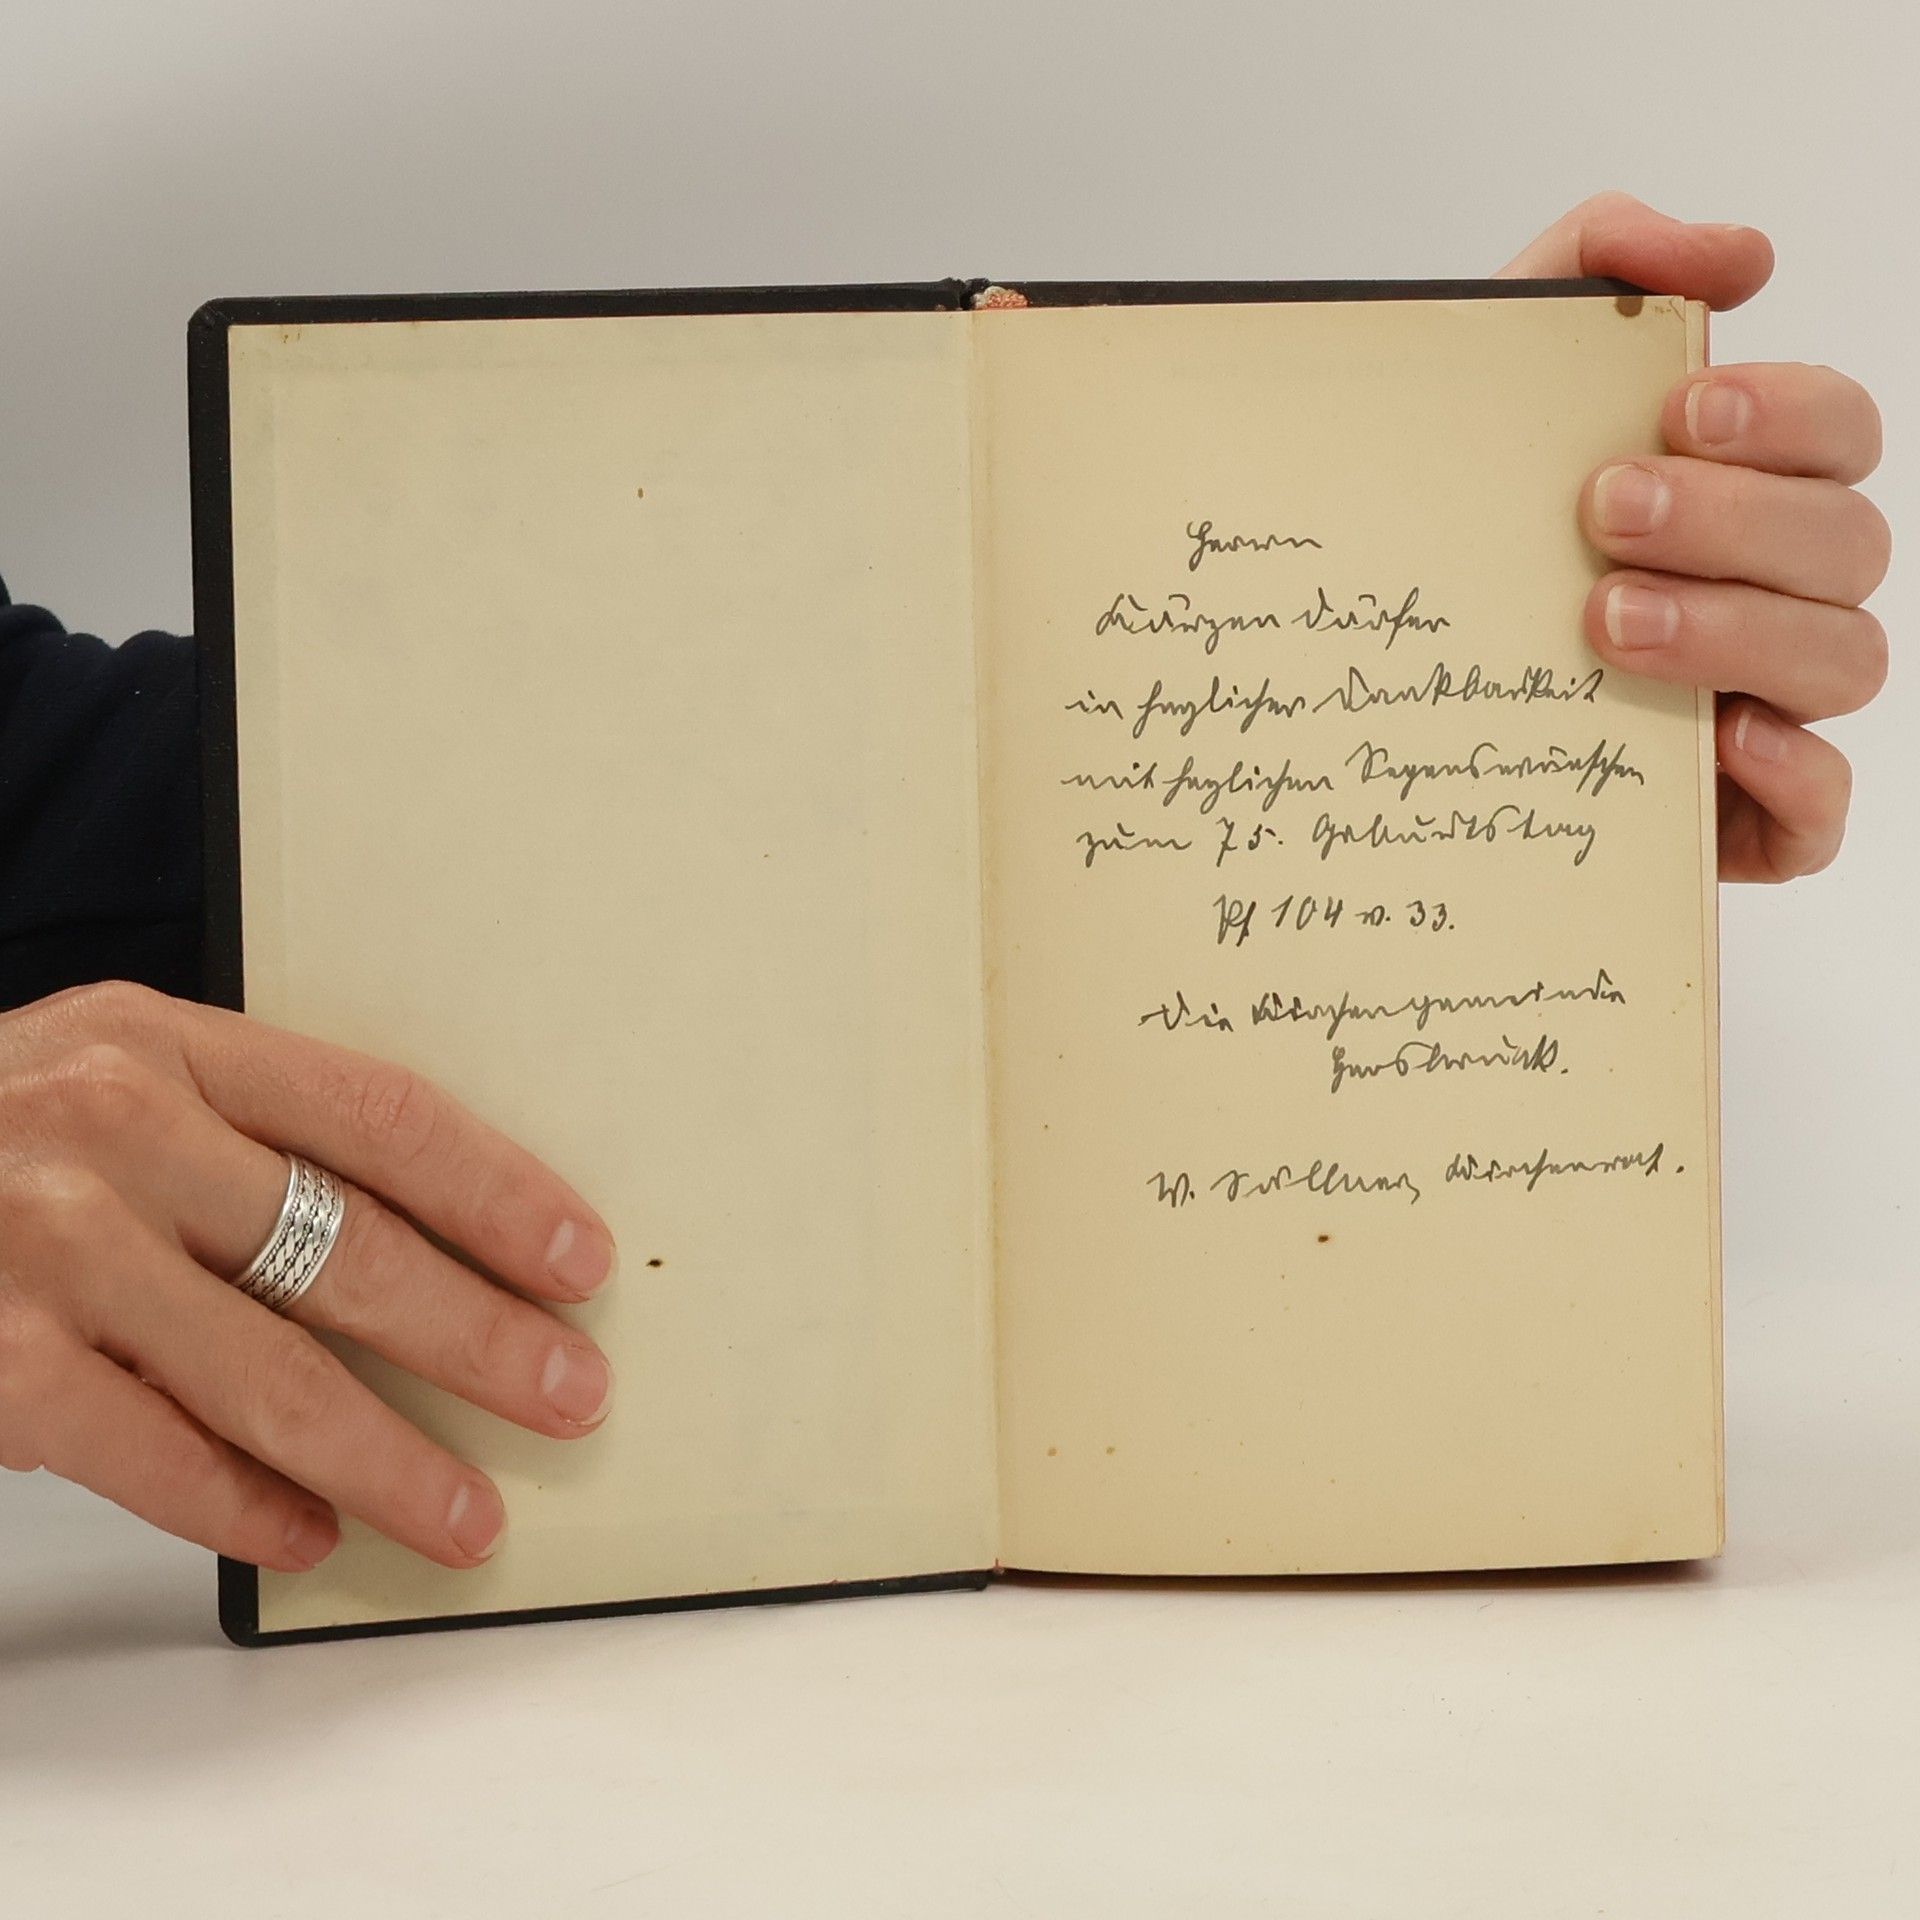 Herrn
Kürzendörfer
in herzlicher Dankbarkeit
mit herzlichen Segenswünschen
zum 75. Geburtstag
Ps 104 v. 33.
Die Kirchengemeinde
Hersbruck.
W. Sollner, Kirchenrat.